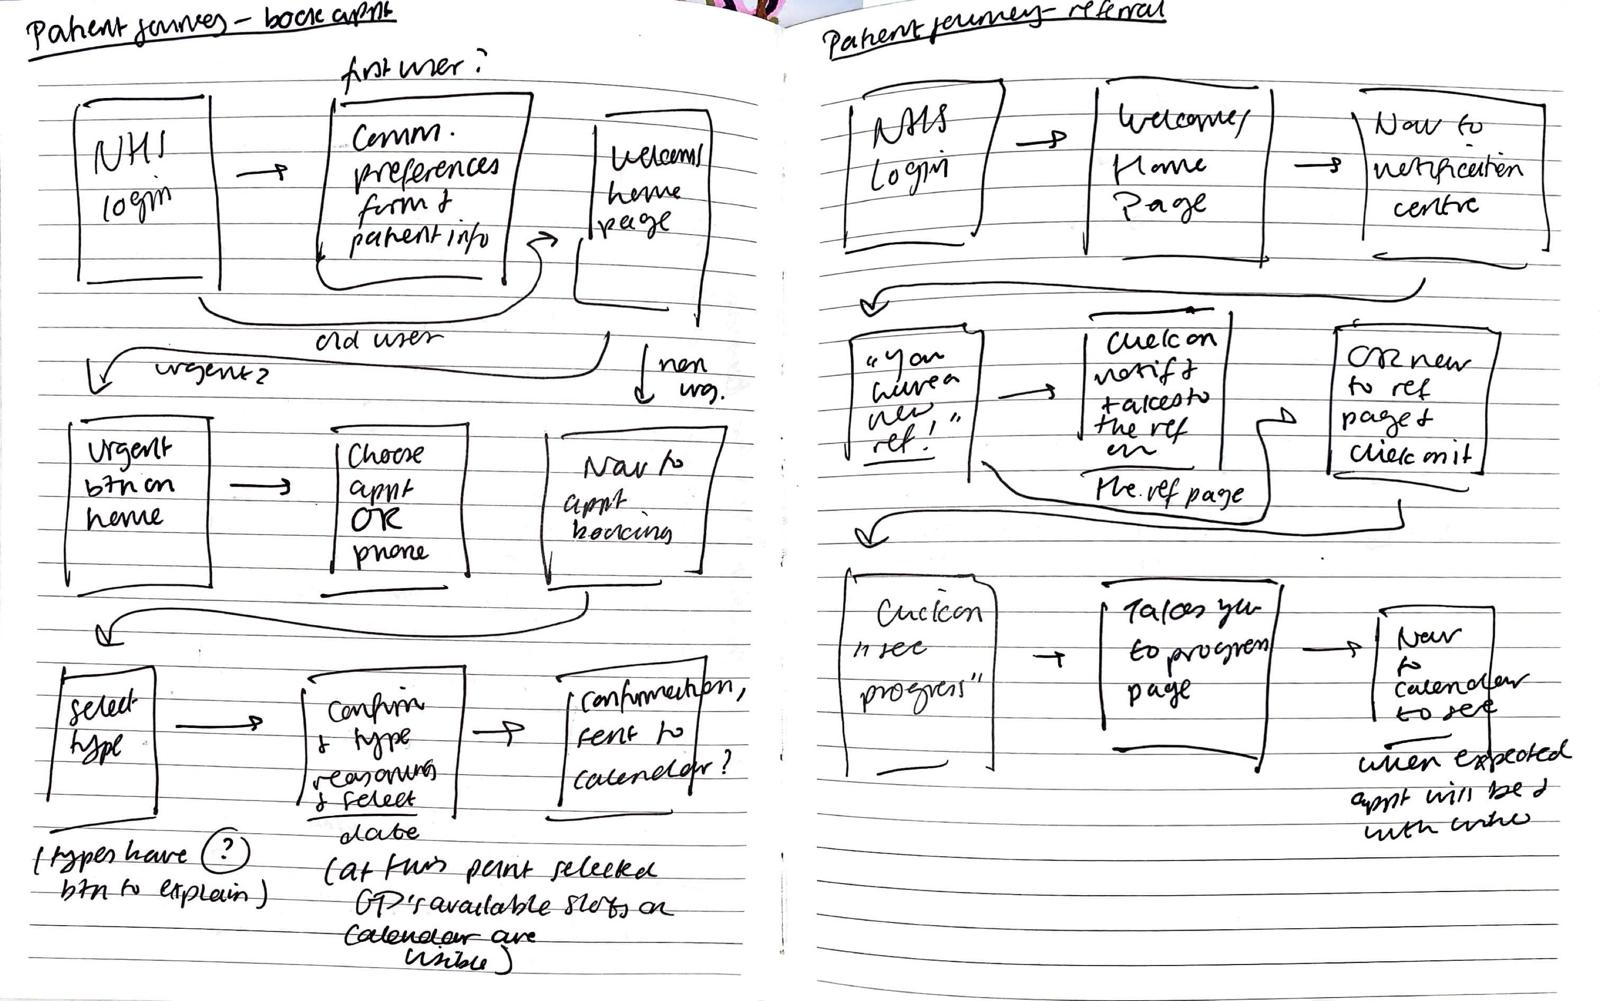 Patient journey - book appnt
first user?
NHS
login
Comm.
preferences
form &
patient info
Welcome/
home
page
old user
urgent?
non
urg.
Urgent
btn on
home
Choose
appnt
OR
phone
Nav to
appnt
booking
Select
type
Confirm
& type
reasoning
& select
date
Confirmation,
sent to
calendar?
(types have ?
btn to explain)
(at this point selected
GP's available slots on
calendar are
visible)
Patient journey - referral
NHS
Login
Welcome/
Home
Page
Nav to
notification
centre
"You
have a
new
ref!"
Click on
notif &
takes to
the ref
on
the ref page
OR nav
to ref
page &
click on it
Click on
"see
progress"
Takes you
to progress
page
Nav
to
calendar
to see
when expected
appnt will be &
with who